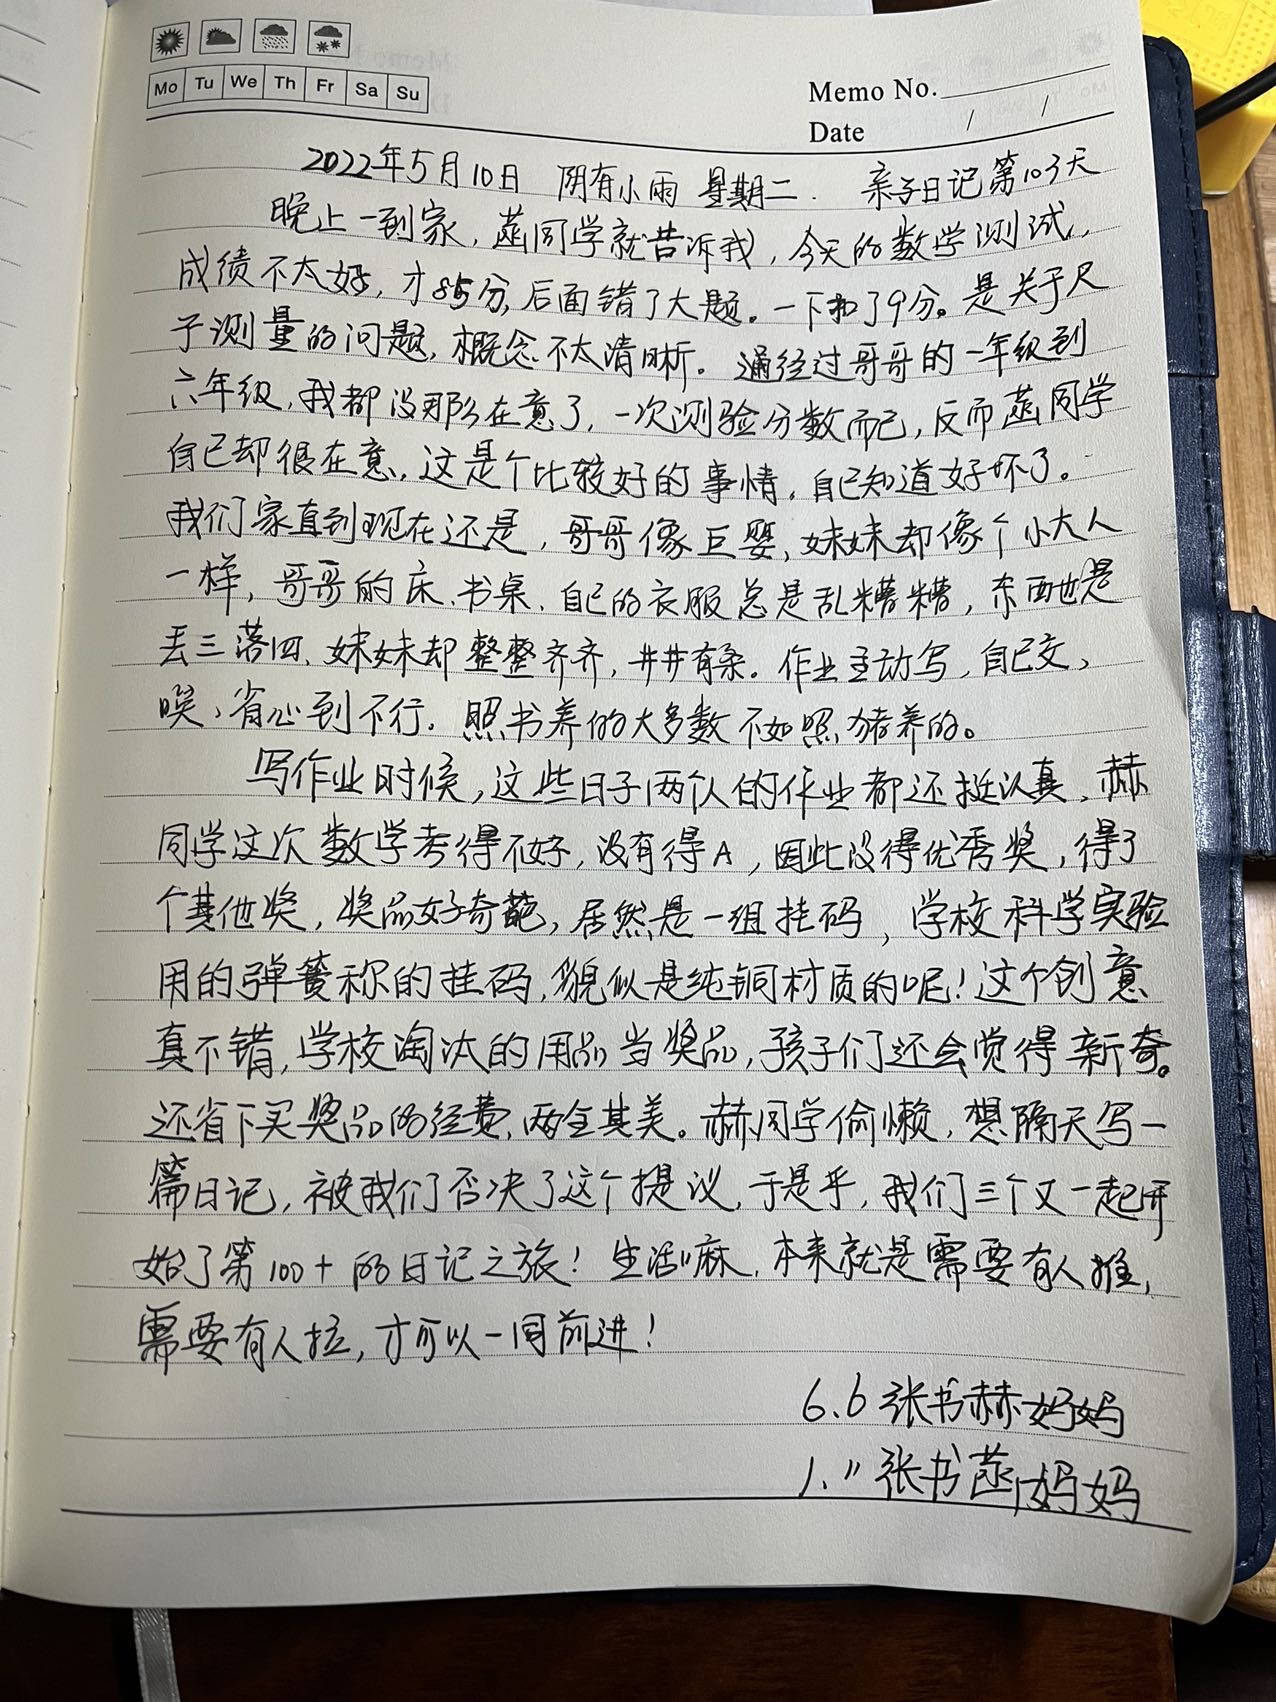 Mo Tu We Th Fr Sa Su
Memo No.
Date / /
2022年5月10日 阴有小雨 星期二. 亲子日记第103天
晚上一到家,菡同学就告诉我,今天的数学测试,
成绩不太好,才85分,后面错了大题。一下扣了9分。是关于尺
子测量的问题,概念不太清晰。通经过哥哥的一年级到
六年级,我都没那么在意了,一次测验分数而已,反而菡同学
自己却很在意,这是个比较好的事情,自己知道好坏了。
我们家直到现在还是,哥哥像巨婴,妹妹却像个小大人
一样,哥哥的床、书桌、自己的衣服总是乱糟糟,东西也是
丢三落四、妹妹却整整齐齐,井井有条。作业主动写,自己交,
唉,省心到不行。照书养的大多数不如照猪养的。
写作业时候,这些日子两个人的作业都还挺认真,赫
同学这次数学考得不好,没有得A,因此没得优秀奖,得了
个其他奖,奖品好奇葩,居然是一组挂码,学校科学实验
用的弹簧称的挂码,貌似是纯铜材质的呢!这个创意
真不错,学校淘汰的用品当奖品,孩子们还会觉得新奇。
还省下买奖品的经费,两全其美。赫同学偷懒,想隔天写一
篇日记,被我们否决了这个提议,于是乎,我们三个又一起开
始了第100+的日记之旅!生活嘛,本来就是需要有人推,
需要有人拉,才可以一同前进!
6.6 张书赫妈妈
1.11 张书菡妈妈